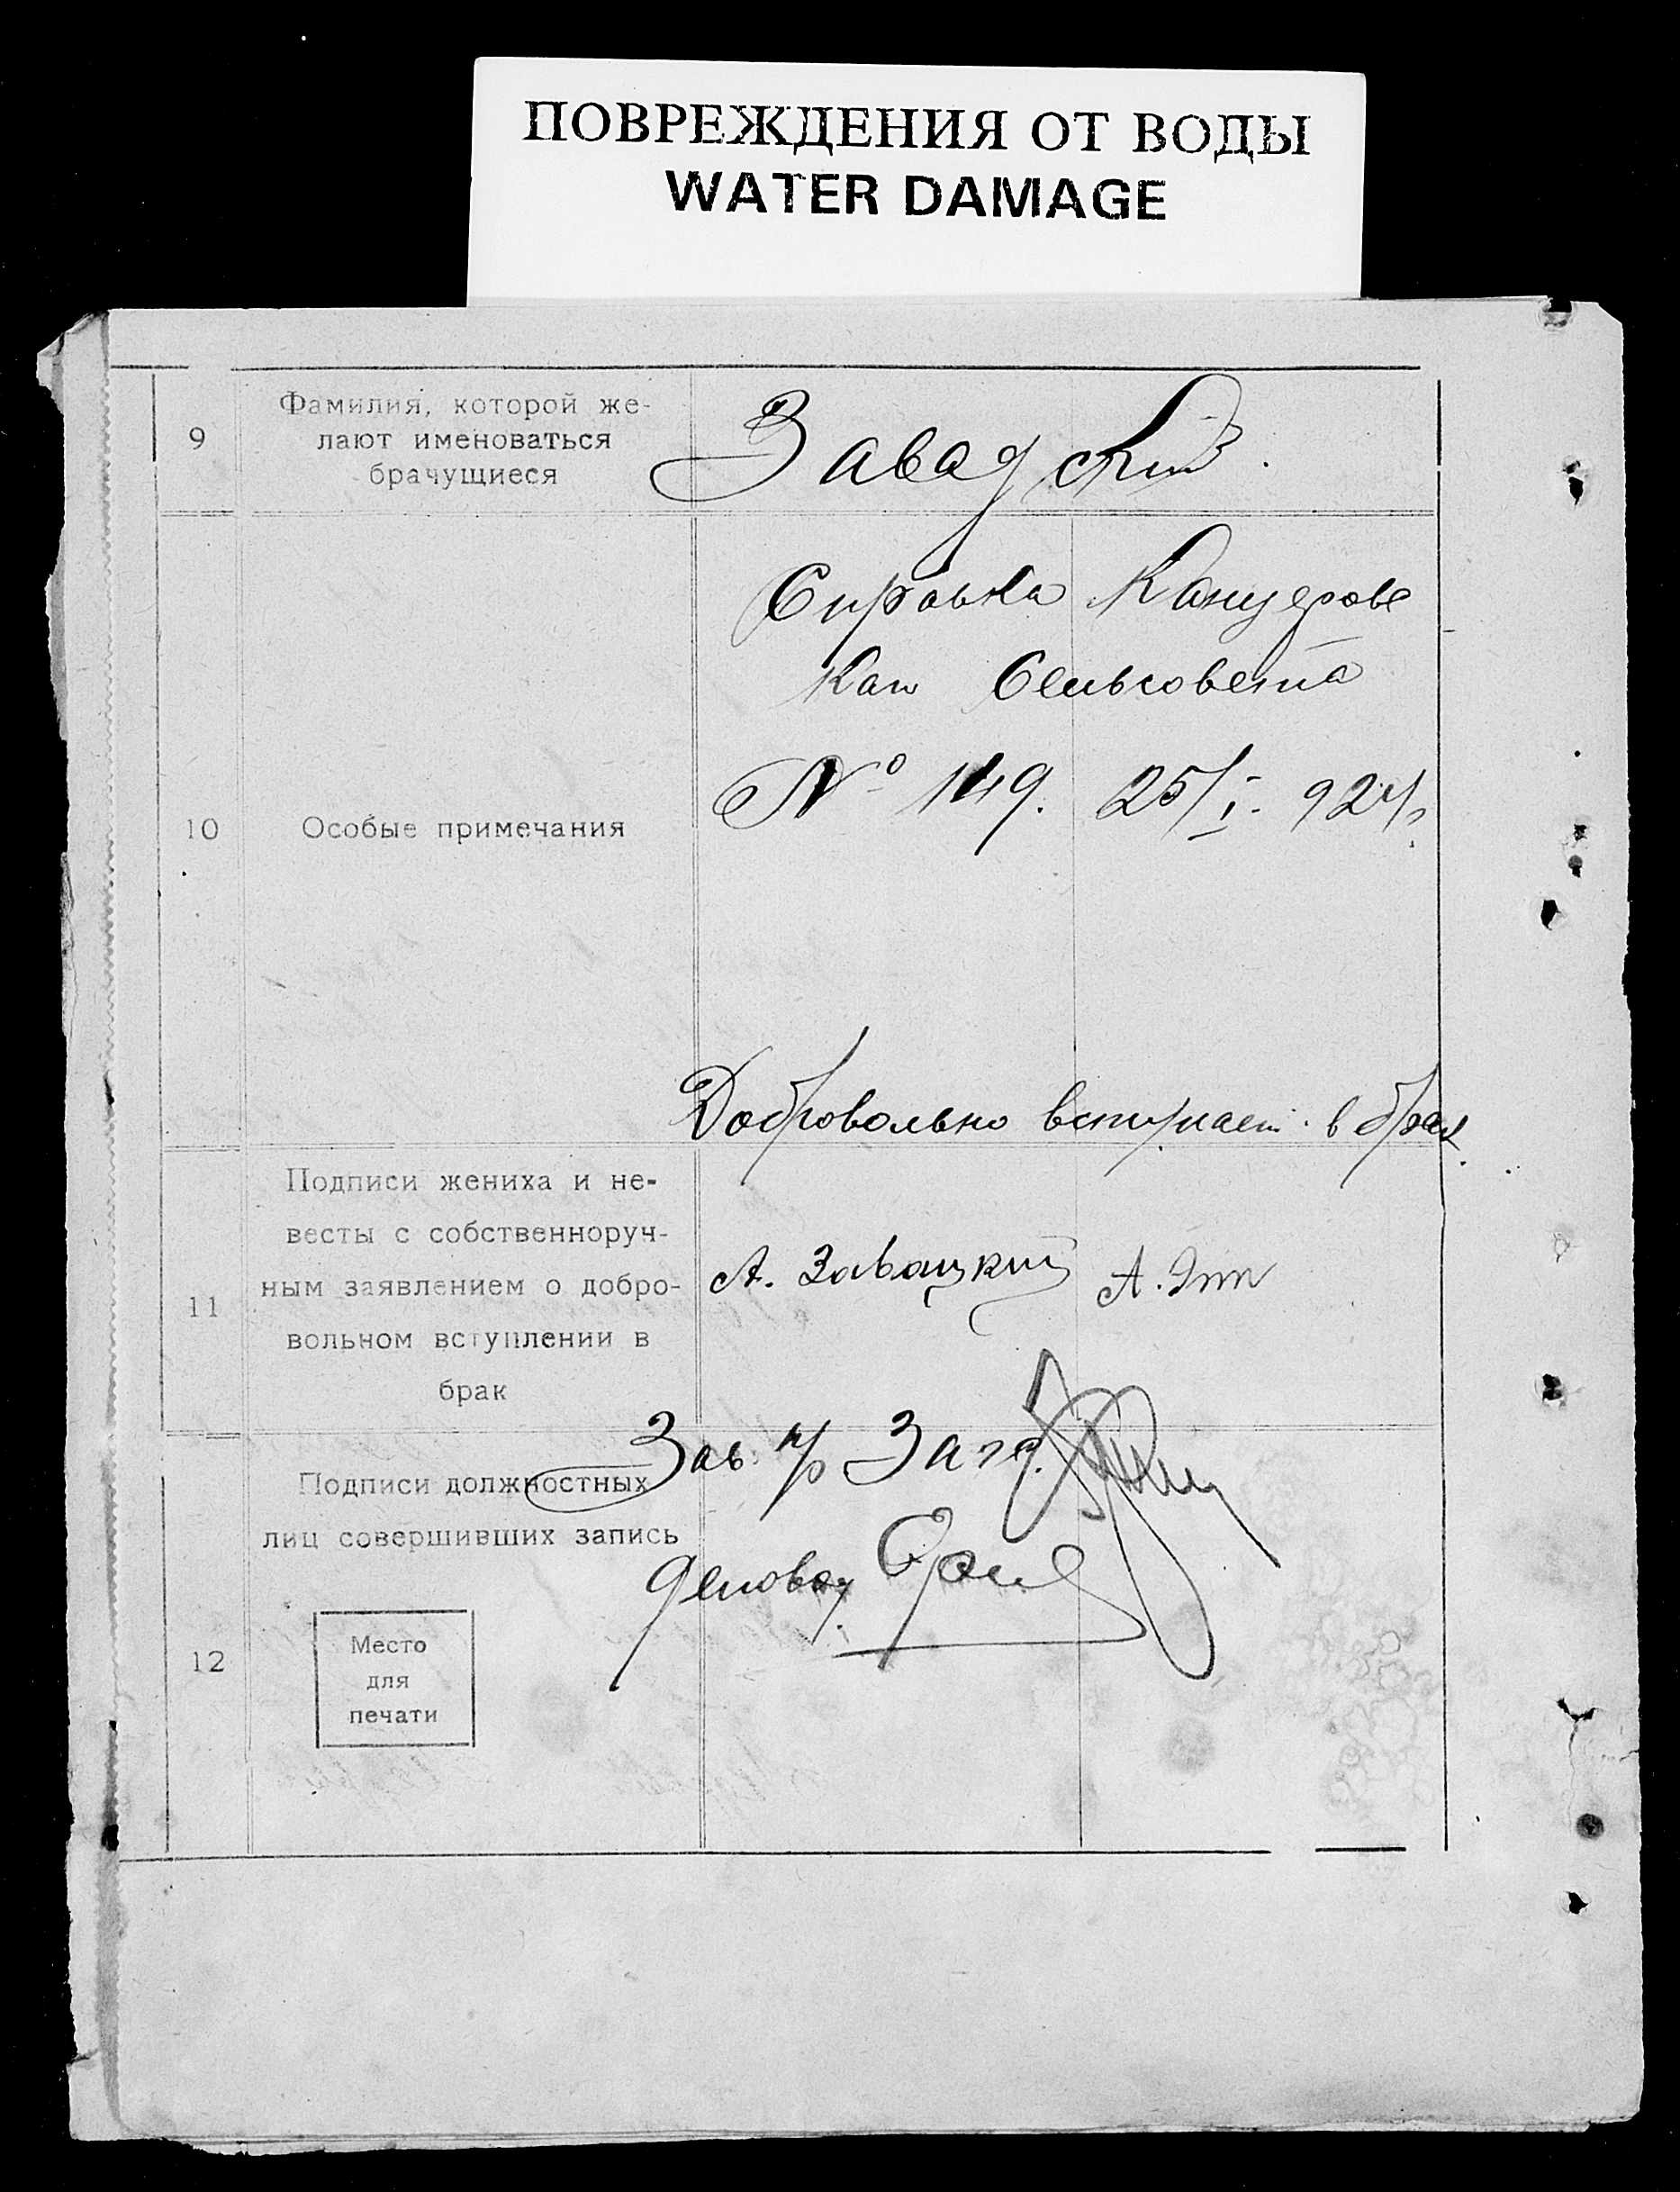 ПОВРЕЖДЕНИЯ ОТ ВОДЫ
WATER DAMAGE
9
Фамилия, которой же-
лают именоваться
брачущиеся
Завадский.
10
Особые примечания
Справка Канцеров
Кам Сельсовета
№ 149. 25/I. 924/г
Добровольно вступаем в брак
11
Подписи жениха и не-
весты с собственноруч-
ным заявлением о добро-
вольном вступлении в
брак
А. Завацкий
А.
12
Подписи должностных
лиц совершивших запись
Зав. п/о Загс.
Деловод.
Место
для
печати